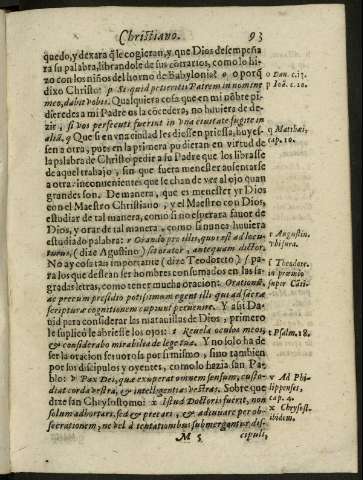 Christiano. 93
quedo, y dexara q̃ le cogieran, y que Dios desempeña
ra su palabra, librandole de sus cõtrarios, como lo hi-
zo con los niños del horno de Babylonia? o o porq̃
dixo Christo: p Si quid petieritis Patrem in nomine
meo, dabit vobis. Qualquiera cosa que en mi nõbre pi-
dieredes a mi Padre os la cõcederà, no huuiera de de-
zir, si vos persecuti fuerint in vna ciuitate fugite in
aliã, q Que si en vna ciudad les diessen priessa, huyes-
sen a otra, pues en la primera pudieran en virtud de
la palabra de Christo pedir a su Padre que los librasse
de aquel trabajo, sin que fuera menester ausentarse
a otra: inconuenientes que se echan de ver al ojo quan
grandes son. De manera, que es menester yr Dios
con el Maestro Christiano, y el Maestro con Dios,
estudiar de tal manera, como si no esperara fauor de
Dios, y orar de tal manera, como si nunca huuiera
estudiado palabra: r Orando pro illis, quos est ad locu-
turus, (dize Augustino) sit orator, antequam dictor.
No ay cosa tan importante (dize Teodoreto) s pa-
ra los que dessean ser hombres consumados en las sa-
gradas letras, como tener mucha oracion: Orationis,
ac precum præsidio potissimum egent illi qui ad sacræ
scripturæ cognitionem cupiunt peruenire. Y assi Da-
uid para considerar las marauillas de Dios, primero
le suplicò le abriesse los ojos: t Reuela oculos meos,
& considerabo mirabilia de lege tua. Y no solo ha de
ser la oracion secutoria por si mismo, sino tambien
por los dicipulos y oyentes, como lo hazia san Pa-
blo: v Pax Dei, quæ exuperat omnem sensum, custo-
diat corda vestra, & intelligentias vestras. Sobre que
dize san Chrysostomo: x Istud Doctoris fuerit, non
solum adhortari, sed & precari, & adiuuare per ob-
secrationem, ne vel à tentationibus submergantur dis-
M 5 cipuli,
o Dan. c. 13.
p Ioã. c. 16.
q Matthæi,
cap. 10.
r Augustin.
vbi supra.
s Theodore.
in præmio
super Cãti-
t Psalm. 18.
v Ad Phi-
lippenses,
cap. 4.
x Chrysost.
ibidem.